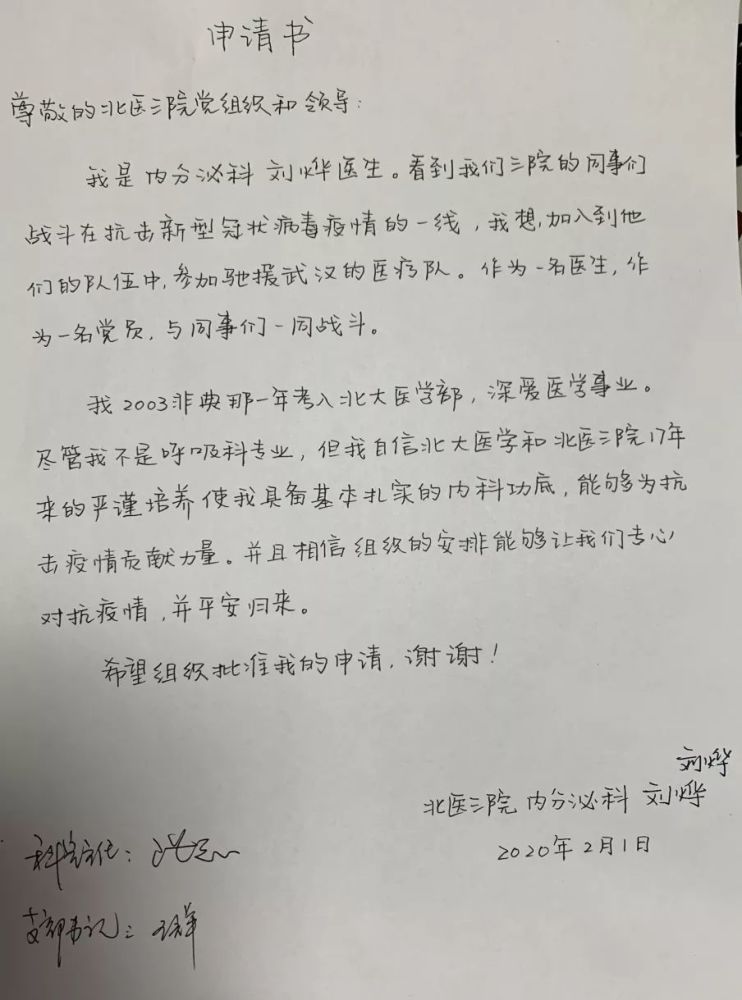 申请书
尊敬的北医三院党组织和领导：
我是内分泌科 刘烨医生。看到我们三院的同事们
战斗在抗击新型冠状病毒疫情的一线，我想加入到他
们的队伍中，参加驰援武汉的医疗队。作为一名医生，作
为一名党员，与同事们一同战斗。
我2003非典那一年考入北大医学部，深爱医学事业。
尽管我不是呼吸科专业，但我自信北大医学和北医三院17年
来的严谨培养使我具备基本扎实的内科功底，能够为抗
击疫情贡献力量。并且相信组织的安排能够让我们专心
对抗疫情，并平安归来。
希望组织批准我的申请，谢谢！
刘烨
北医三院 内分泌科 刘烨
2020年2月1日
科室主任：
支部书记：